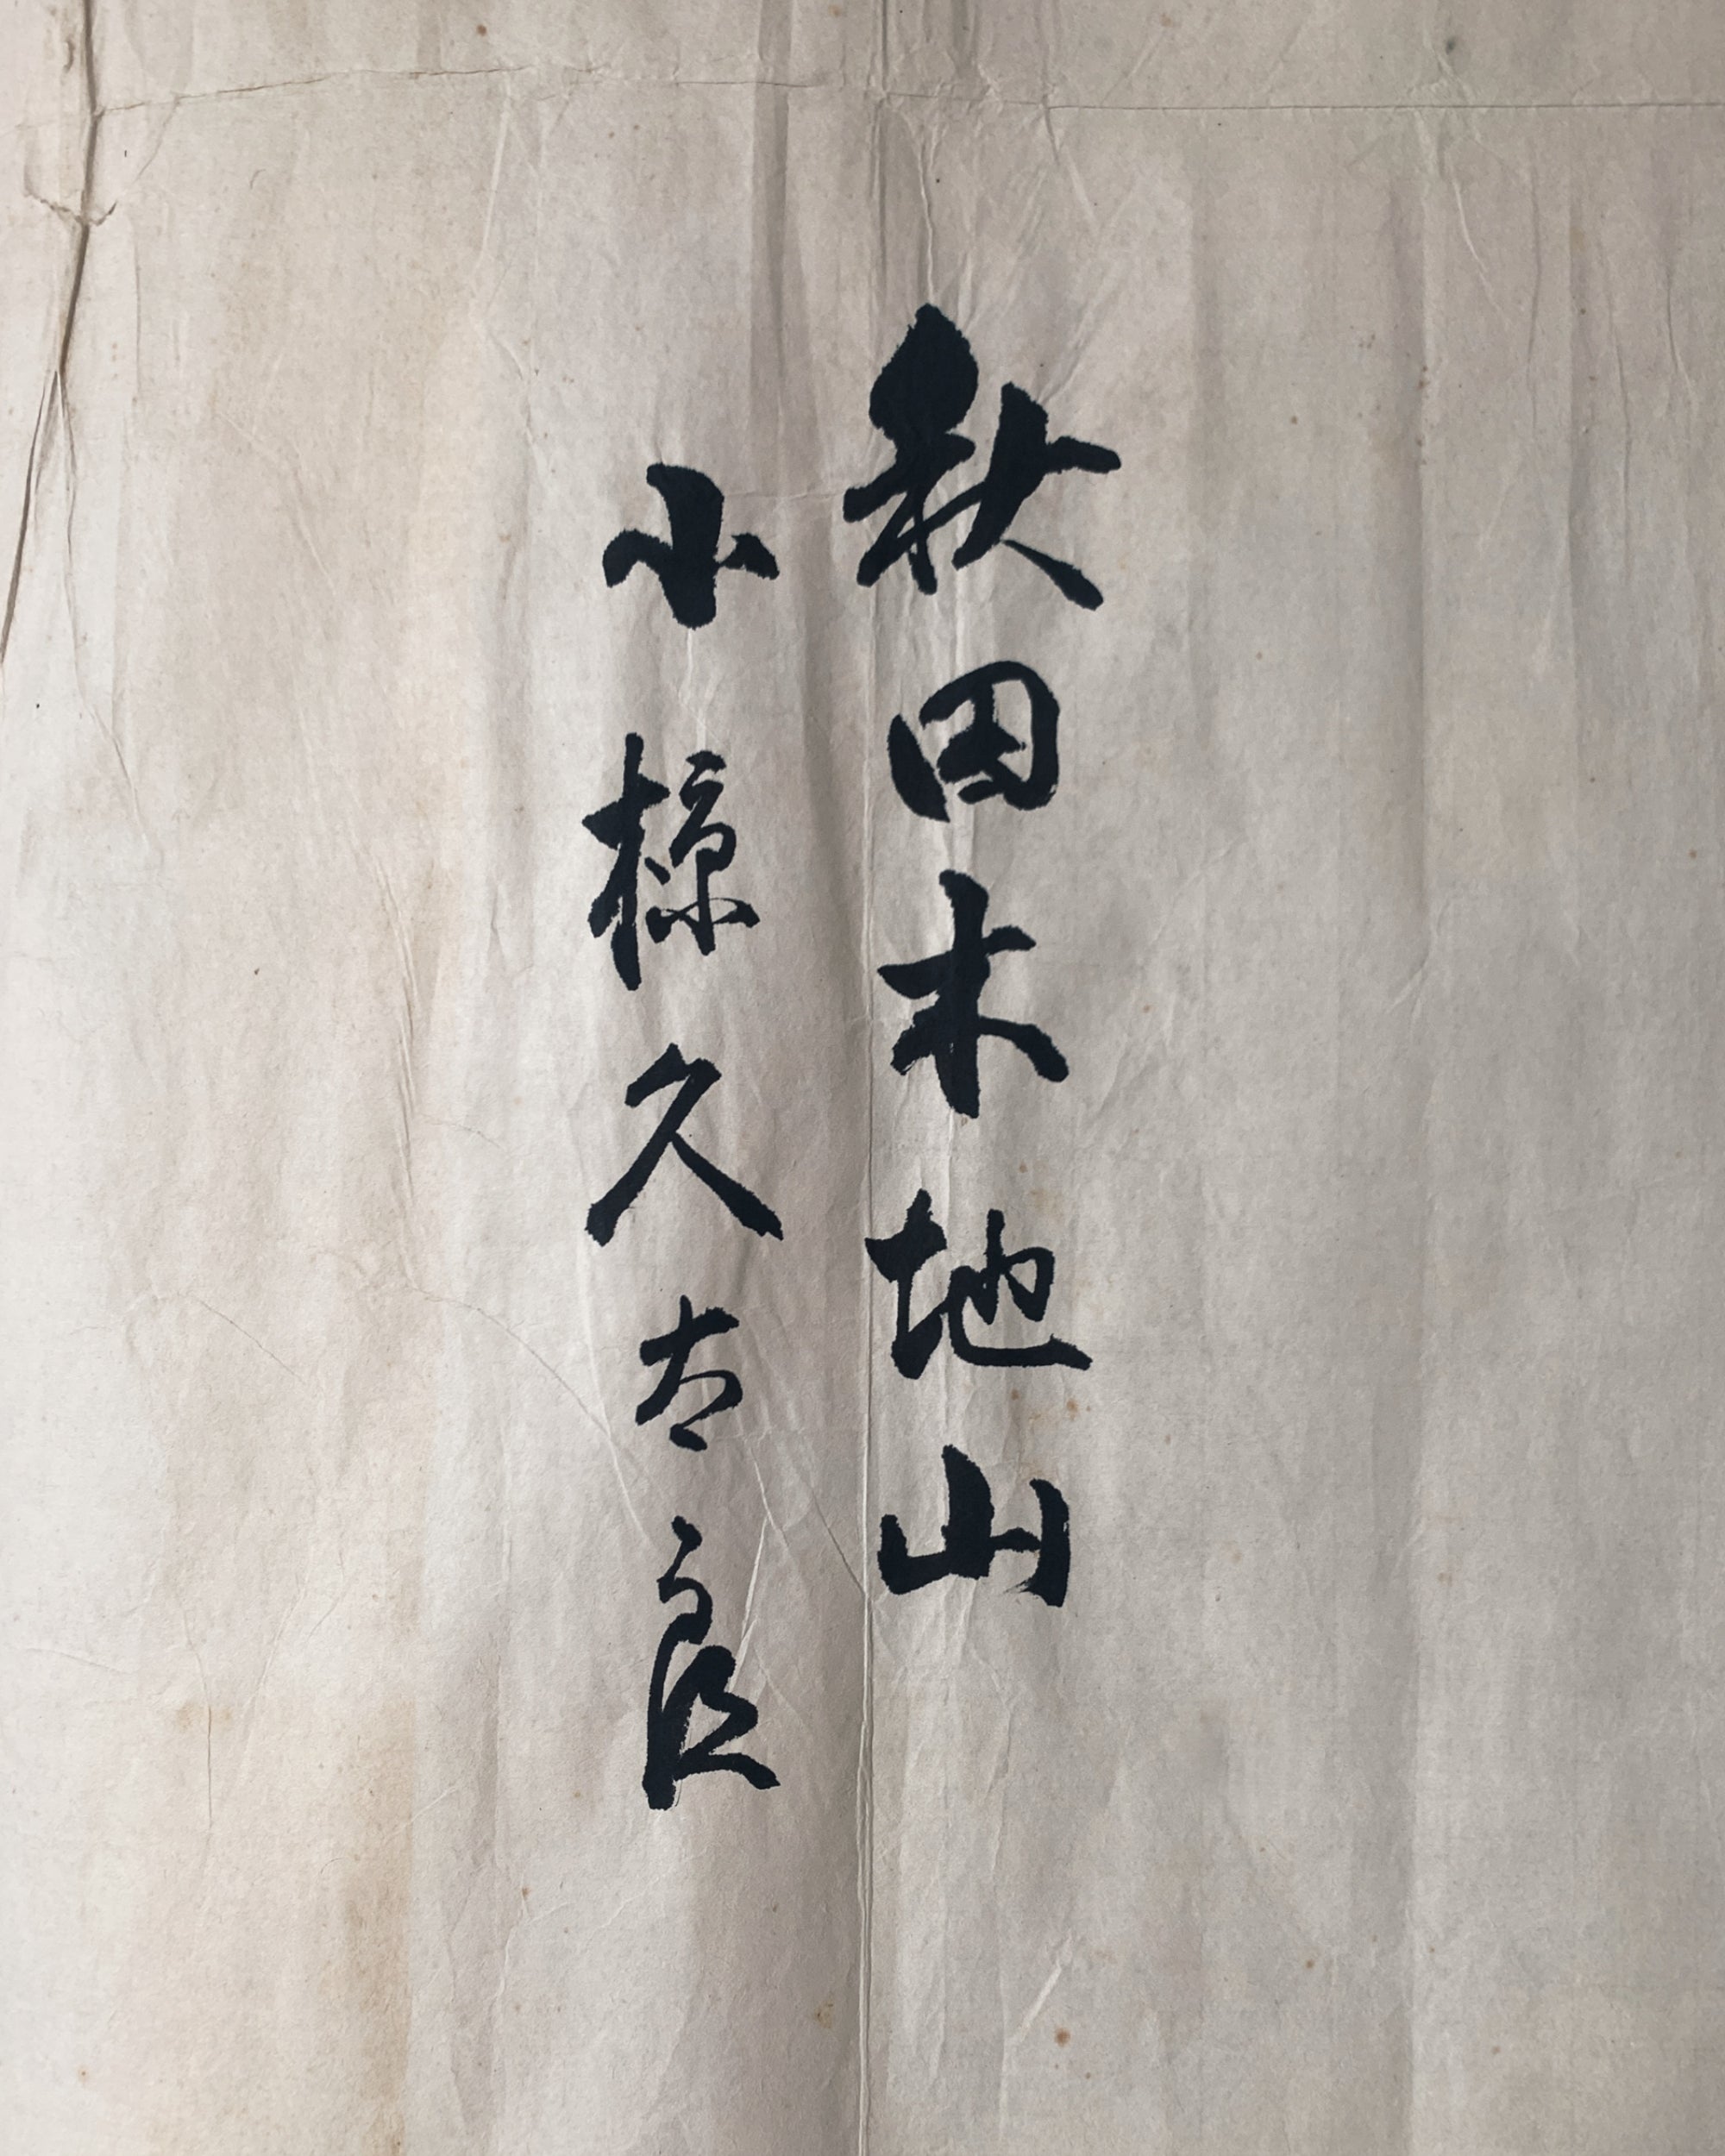 秋田木地山
小椋久太良